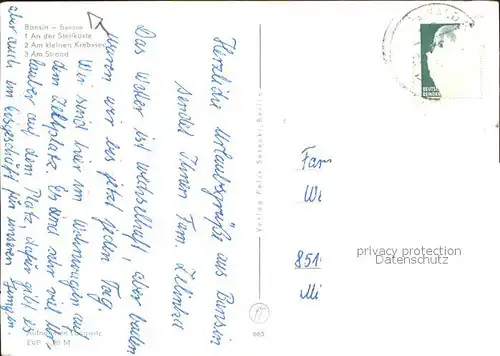 Bansin - Seesee
1 An der Steilküste
2 Am kleinen Krebssee
3 Am Strand
Herzliche Urlaubsgrüße aus Bansin
sendet Ihnen Fam.
Das Wetter ist wechselhaft, aber baden
waren wir bis jetzt jeden Tag.
Wir sind hier im Wohnwagen auf
dem Zeltplatz. Es sind sehr viel Ur-
lauber auf dem Platz, daher gibt es
aber auch im Eisgeschäft für unseren Jungen.
EVP
Verlag Felix Setecki, Berlin
665
DEUTSCHE
DEMOKR
Fam
We
851
Mi
privacy protection
Datenschutz